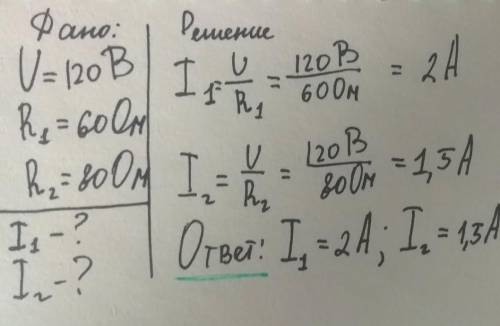 Дано:
U = 120 В
R₁ = 60 Ом
R₂ = 80 Ом
I₁ - ?
I₂ - ?
Решение
I₁ = U/R₁ = 120 В/60 Ом = 2 А
I₂ = U/R₂ = 120 В/80 Ом = 1,5 А
Ответ: I₁ = 2 А; I₂ = 1,5 А